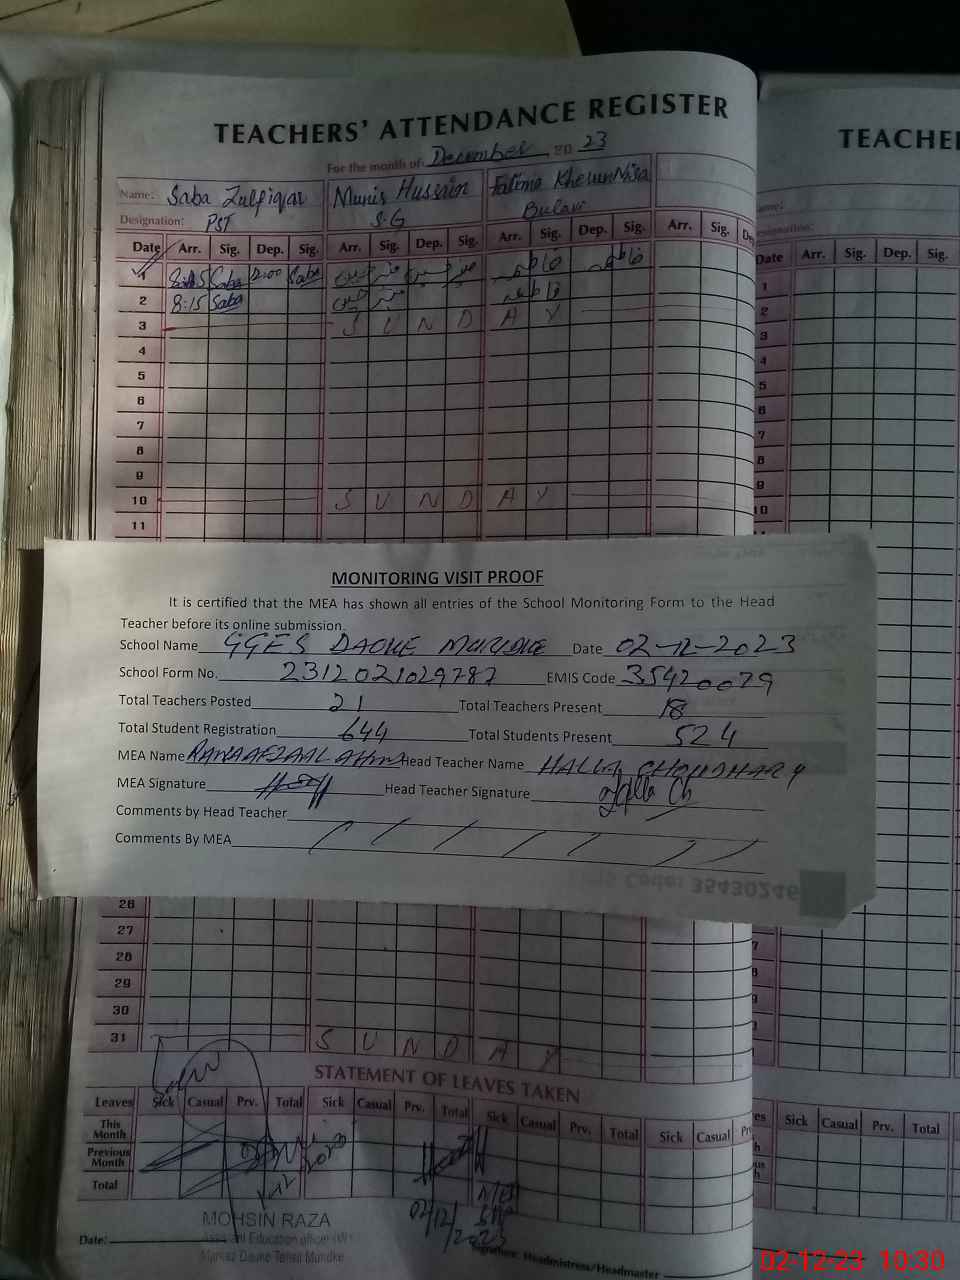 TEACHERS' ATTENDANCE REGISTER
For the month of December 20 23
Name: Saba Zulfiqar Munir Hussain Fatima KherunNisa
Designation: PST S.G Bulavi
Date Arr. Sig. Dep. Sig. Arr. Sig. Dep. Sig. Arr. Sig. Dep. Sig. Arr. Sig.
1 Saba 2:00 Saba
2 8:15 Saba
3 S U N D A Y
4
5
6
7
8
9
10 S U N D A Y
11
MONITORING VISIT PROOF
It is certified that the MEA has shown all entries of the School Monitoring Form to the Head
Teacher before its online submission.
School Name GGES DAOKE MURIDKE Date 02-12-2023
School Form No. 2312021029787 EMIS Code 35420079
Total Teachers Posted 21 Total Teachers Present 18
Total Student Registration 644 Total Students Present 524
MEA Name Head Teacher Name CHOUDHARY
MEA Signature Head Teacher Signature
Comments by Head Teacher
Comments By MEA
EMIS Code: 35430246
26
27
28
29
30
31 S U N D A Y
STATEMENT OF LEAVES TAKEN
Leaves Sick Casual Prv. Total Sick Casual Prv. Total Sick Casual Prv. Total Sick Casual
This Month
Previous Month
Total
02/12/2023
MOHSIN RAZA
Assistant Education officer (W)
Markaz Daoke Tehsil Muridke
Date:
Signature: Headmistress/Headmaster
TEACHE
Date Arr. Sig. Dep. Sig.
1
2
3
4
5
6
7
8
9
10
Sick Casual Prv. Total
02-12-23 10:30